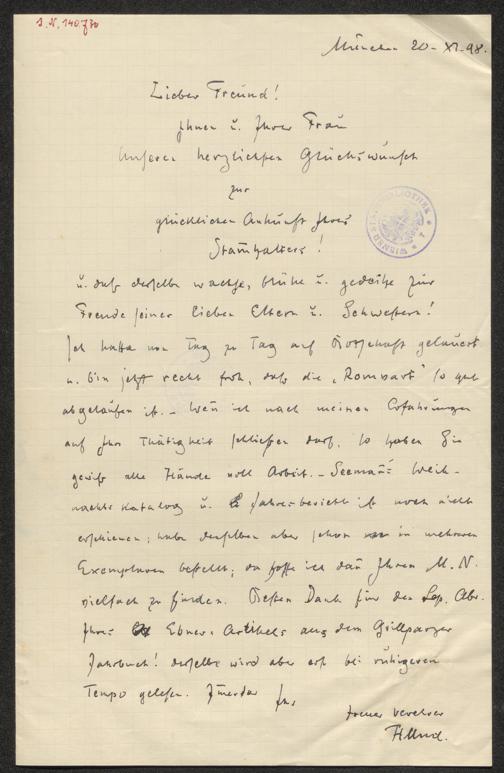 I. N. 140.730
München 20-XI-98.
Lieber Freund!
Ihnen u. Ihrer Frau
unseren herzlichsten Glückwunsch
zur
glücklichen Ankunft Ihres
Stam̄halters!
u. daß derselbe wachse, blühe u. gedeihe zur
Freude seiner lieben Eltern u. Schwestern!
Ich hatte von Tag zu Tag auf Botschaft gelauert
u. bin jetzt recht froh, daß die so gut
abgelaufen ist. – Weñ ich nach meinen Erfahrungen
auf Ihre Thätigkeit schließen darf, so haben Sie
gewiß alle Hände voll Arbeit. – Seemañs Weih-
nachts Katalog u. Jahresbericht ist noch nicht
erschienen; habe denselben aber schon in mehreren
Exemplaren bestellt; da hoffe ich dañ Ihren M. N.
vielfach zu finden. Besten Dank für den Sep. Abr.
Ihres Ebner Artikels aus dem Grillparzer
Jahrbuch! derselbe wird aber erst bei ruhigerem
Tempo gelesen. Im̄erdar Ihr
treuer Verehrer
WIENER STADTBIBLIOTHEK